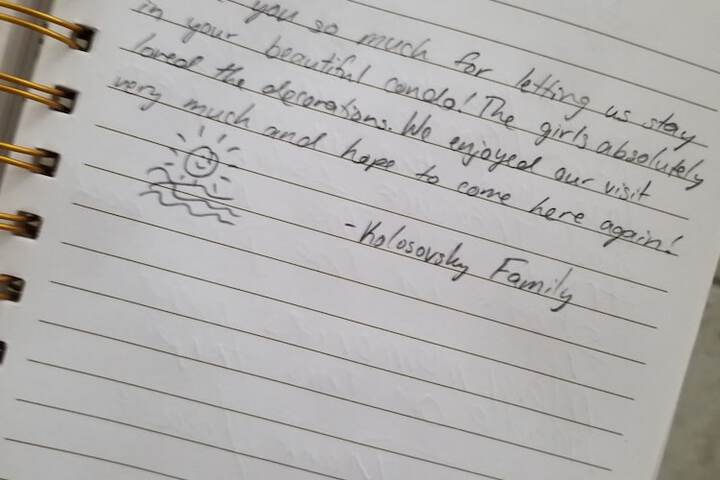 you so much for letting us stay
in your beautiful condo! The girls absolutely
loved the decorations. We enjoyed our visit
very much and hope to come here again!
-Kolosovsky Family